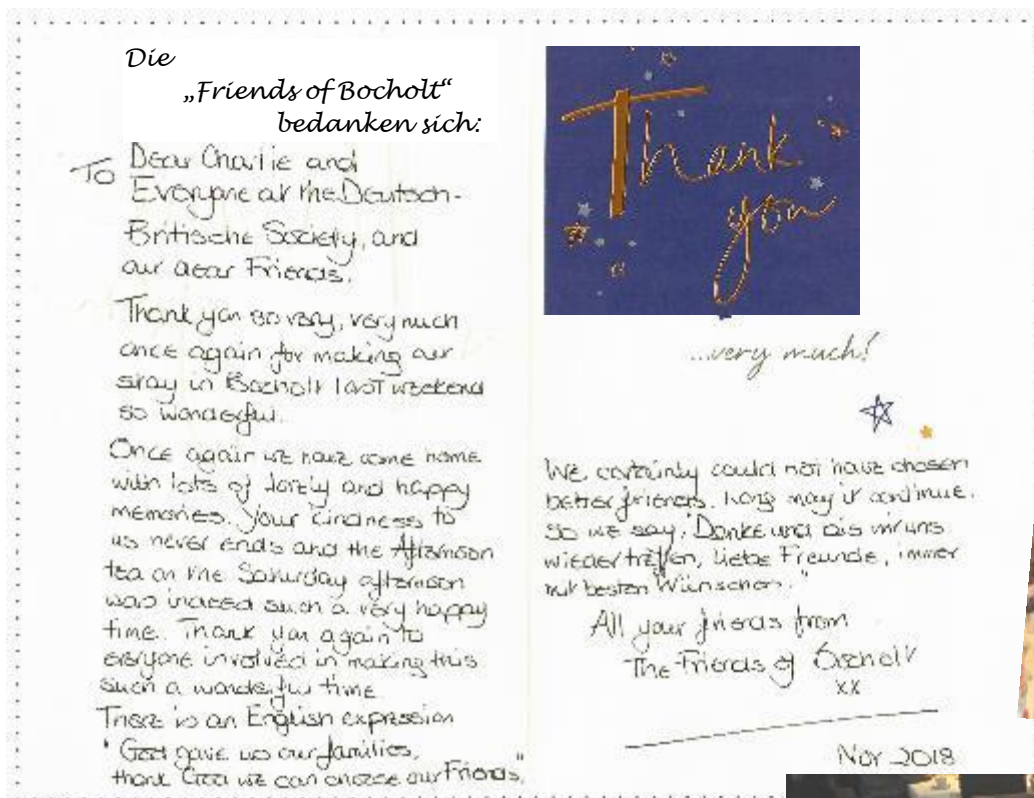 Die
„Friends of Bocholt“
bedanken sich:
To Dear Charlie and
Everyone at the Deutsch-
Britische Society, and
our dear Friends.
Thank you so very, very much
once again for making our
stay in Bocholt last weekend
so wonderful.
Once again we have come home
with lots of lovely and happy
memories. Your kindness to
us never ends and the Afternoon
tea on the Saturday afternoon
was indeed such a very happy
time. Thank you again to
everyone involved in making this
such a wonderful time
There is an English expression
"God gave us our families,
thank God we can choose our Friends."
Thank
you
...very much!
We certainly could not have chosen
better friends. Long may it continue.
So we say "Danke und bis wir uns
wieder treffen, liebe Freunde, immer
mit besten Wünschen."
All your friends from
The Friends of Bocholt
xx
Nov 2018